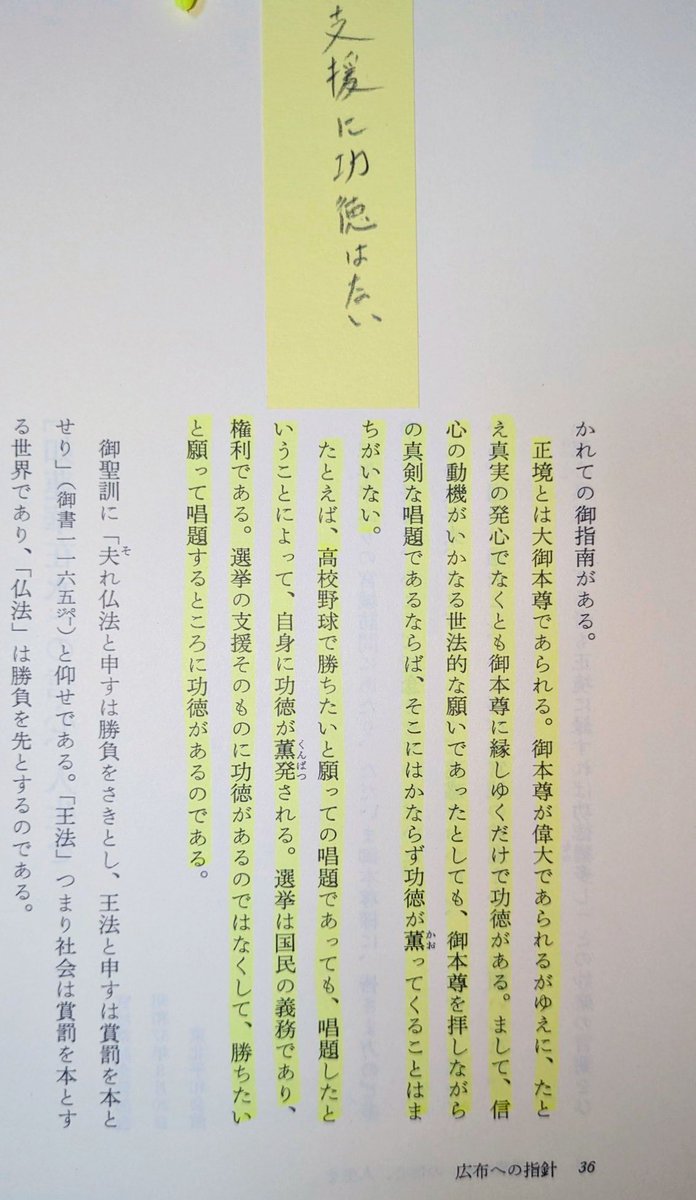 支援に功徳はない
かれての御指南がある。
正境とは大御本尊であられる。御本尊が偉大であられるがゆえに、たと
え真実の発心でなくとも御本尊に縁しゆくだけで功徳がある。まして、信
心の動機がいかなる世法的な願いであったとしても、御本尊を拝しながら
の真剣な唱題であるならば、そこにはかならず功徳が薫ってくることはま
かお
ちがいない。
たとえば、高校野球で勝ちたいと願っての唱題であっても、唱題したと
いうことによって、自身に功徳が薫発される。選挙は国民の義務であり、
くんぱつ
権利である。選挙の支援そのものに功徳があるのではなくして、勝ちたい
と願って唱題するところに功徳があるのである。
御聖訓に「夫れ仏法と申すは勝負をさきとし、王法と申すは賞罰を本と
そ
せり」(御書一一六五㌻)と仰せである。「王法」つまり社会は賞罰を本とす
る世界であり、「仏法」は勝負を先とするのである。
広布への指針 36